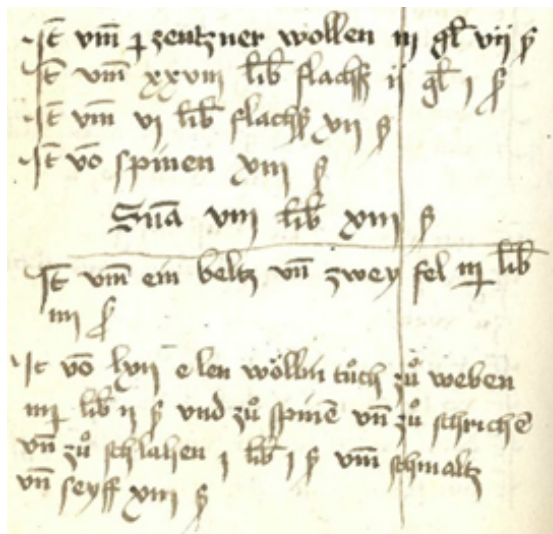 It vm̄ j zentzner wollen iij gl̄ vij ß
It vm̄ xxviij lib flachß ij gl̄ j ß
It vm̄ vj lib flachß xvij ß
It vō spinen xviij ß
Sūa viij lib xviij ß
It vm̄ ein beltz vn̄ zwey fel lib
iiij ß
It vō lxvij elen wöllin tůch zů weben
lib ij ß vnd zů spinē vn̄ zů schrichē
vn̄ zů schlahen j lib j ß vm̄ schmaltz
vn̄ seyff xviij ß